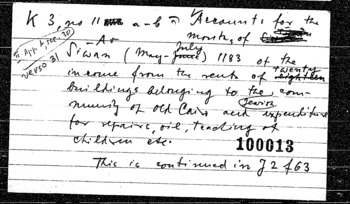 K 3, no 11 a-b Accounts for the
month of
to App B, sec. 30
verso 31
Siwan (May-July) 1183 of the
income from the rents of twenty
buildings belonging to the com-
munity of Old Cairo and expenditure
for repairs, oil, teaching of
children etc.
100013
This is continued in J 2 f 63